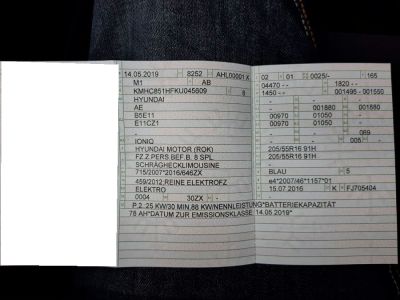 14.05.2019 8252 AHL00001 X
M1 AB
KMHC851HFKU045609 8
HYUNDAI
AE
B5E11
E11CZ1
-
IONIQ
HYUNDAI MOTOR (ROK)
FZ.Z.PERS.BEF.B. 8 SPL.
SCHRÄGHECKLIMOUSINE
715/2007*2016/646ZX
459/2012;REINE ELEKTROFZ
ELEKTRO
0004 30ZX -
P.2: 25 KW/30 MIN,88 KW/NENNLEISTUNG*BATTERIEKAPAZITÄT
78 AH*DATUM ZUR EMISSIONSKLASSE: 14.05.2019*
02 01 0025/- 165
04470 - - 1820 - -
1450 - - 001495 - 001550
- - -
- 001880 001880
00970 01050 -
00970 01050 -
- - 069
- - 005 -
205/55R16 91H
205/55R16 91H
-
BLAU 5
e4*2007/46*1157*01
15.07.2016 K FJ705404